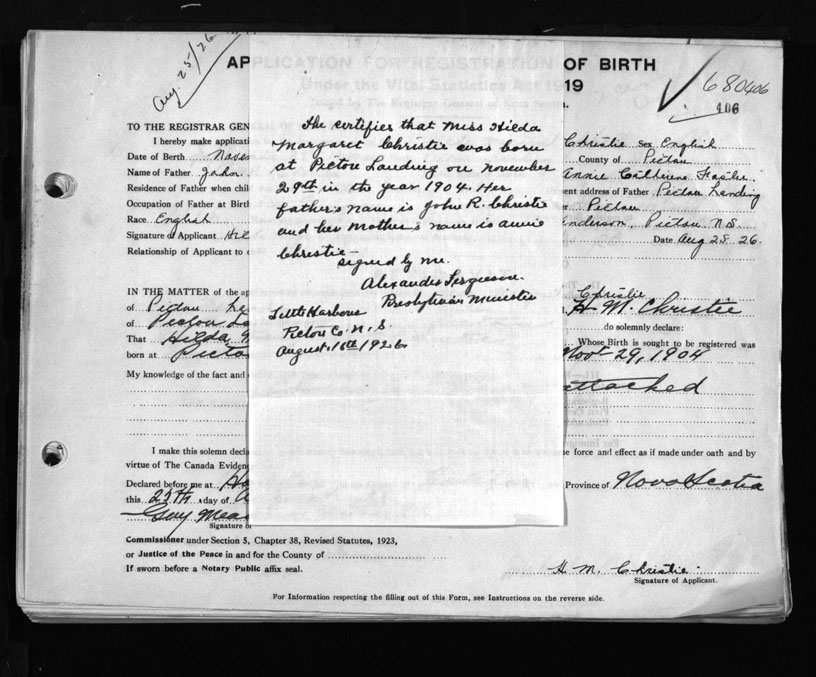 Aug. 25/26
AP
OF BIRTH
19
680406
406
TO THE REGISTRAR GEN
I hereby make applicati
Christie Sex English
Date of Birth
County of Pictou
Name of Father John R.
Annie Catherine Foster
Residence of Father when chil
ent address of Father Pictou Landing
Occupation of Father at Birth
Pictou
Race English
Anderson, Pictou N.S.
Signature of Applicant Hil
Date Aug 25 26.
Relationship of Applicant to c
The certifies that Miss Hilda
Margaret Christie was born
at Pictou Landing on November
29th in the year 1904. Her
father's name is John R. Christie
and her mother's name is Annie
Christie—
signed by me.
Alexander Ferguson.
Presbyterian Minister
Little Harbour
Pictou Co. N.S.
August 16th 1926
IN THE MATTER of the ap
of Pictou
Christie
of Pictou La
H. M. Christie
do solemnly declare:
That Hilda M
Whose Birth is sought to be registered was
born at Picto
Nov. 29, 1904
My knowledge of the fact and
attached
I make this solemn decla
se force and effect as if made under oath and by
virtue of The Canada Evidenc
Declared before me at Ha
Province of Nova Scotia
this 25th day of A
Signature o
Commissioner under Section 5, Chapter 38, Revised Statutes, 1923,
or Justice of the Peace in and for the County of
If sworn before a Notary Public affix seal.
H. M. Christie
Signature of Applicant.
For Information respecting the filling out of this Form, see Instructions on the reverse side.